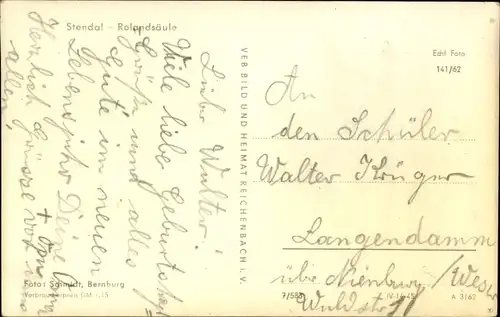 Stendal – Rolandsäule
Lieber Walter!
Viele liebe Geburtstags=
grüße und alles
Gute im neuen
Lebensjahr Deine
+ Opa
Herzlich Grüsse von
allen
Foto: Schmidt, Bernburg
VEB BILD UND HEIMAT REICHENBACH i. V.
Echt Foto
141/62
An
den Schüler
Walter Krüger
Langendamm
über Nienburg/Weser
Waldstr.
7/588 IV-14-45 A 3162